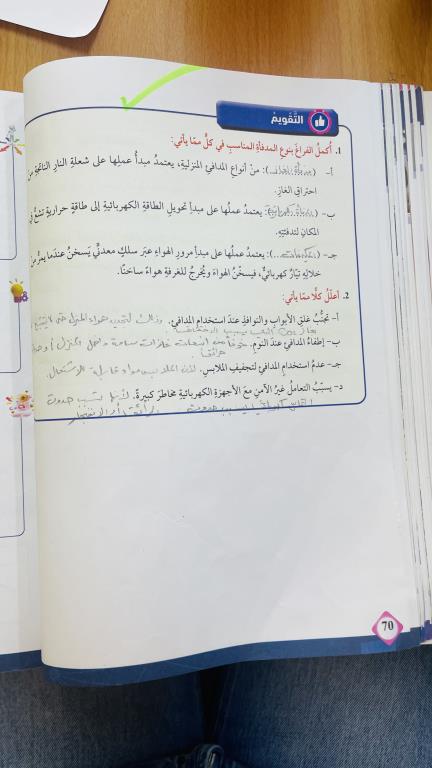 التَّقويمُ
1. أُكملُ الفراغَ بنوعِ المدفأةِ المناسبِ في كلٍّ ممّا يأتي:
أ- ( ): منْ أنواعِ المدافئِ المنزليةِ، يعتمدُ مبدأُ عملِها على شعلةِ النارِ الناتجةِ منَ
احتراقِ الغازِ.
ب- ( ): يعتمدُ عملُها على مبدأِ تحويلِ الطاقةِ الكهربائيةِ إلى طاقةٍ حراريةٍ تشعُّ في
المكانِ لتدفئتِهِ.
جـ- ( ): يعتمدُ عملُها على مبدأِ مرورِ الهواءِ عبرَ سلكٍ معدنيٍّ يَسخنُ عندَما يمرُّ منْ
خلالِهِ تيّارٌ كهربائيٌّ، فيسخّنُ الهواءَ ويُخرجُ للغرفةِ هواءً ساخنًا.
2. أُعلّلُ كلًّا ممّا يأتي:
أ- تجنُّبُ غلقِ الأبوابِ والنوافذِ عندَ استخدامِ المدافئِ. وذلك لتجديد هواء المنزل حتى لا
غاز يسبب الاختناق
ب- إطفاءُ المدافئِ عندَ النومِ. خوفاً من انبعاث غازات سامة داخل المنزل أو
حرائق
جـ- عدمُ استخدامِ المدافئِ لتجفيفِ الملابسِ. لأن مواد الاشتعال.
د- يسبّبُ التعاملُ غيرُ الآمنِ معَ الأجهزةِ الكهربائيةِ مخاطرَ كبيرةً. لأنها تسبب حدوث
70